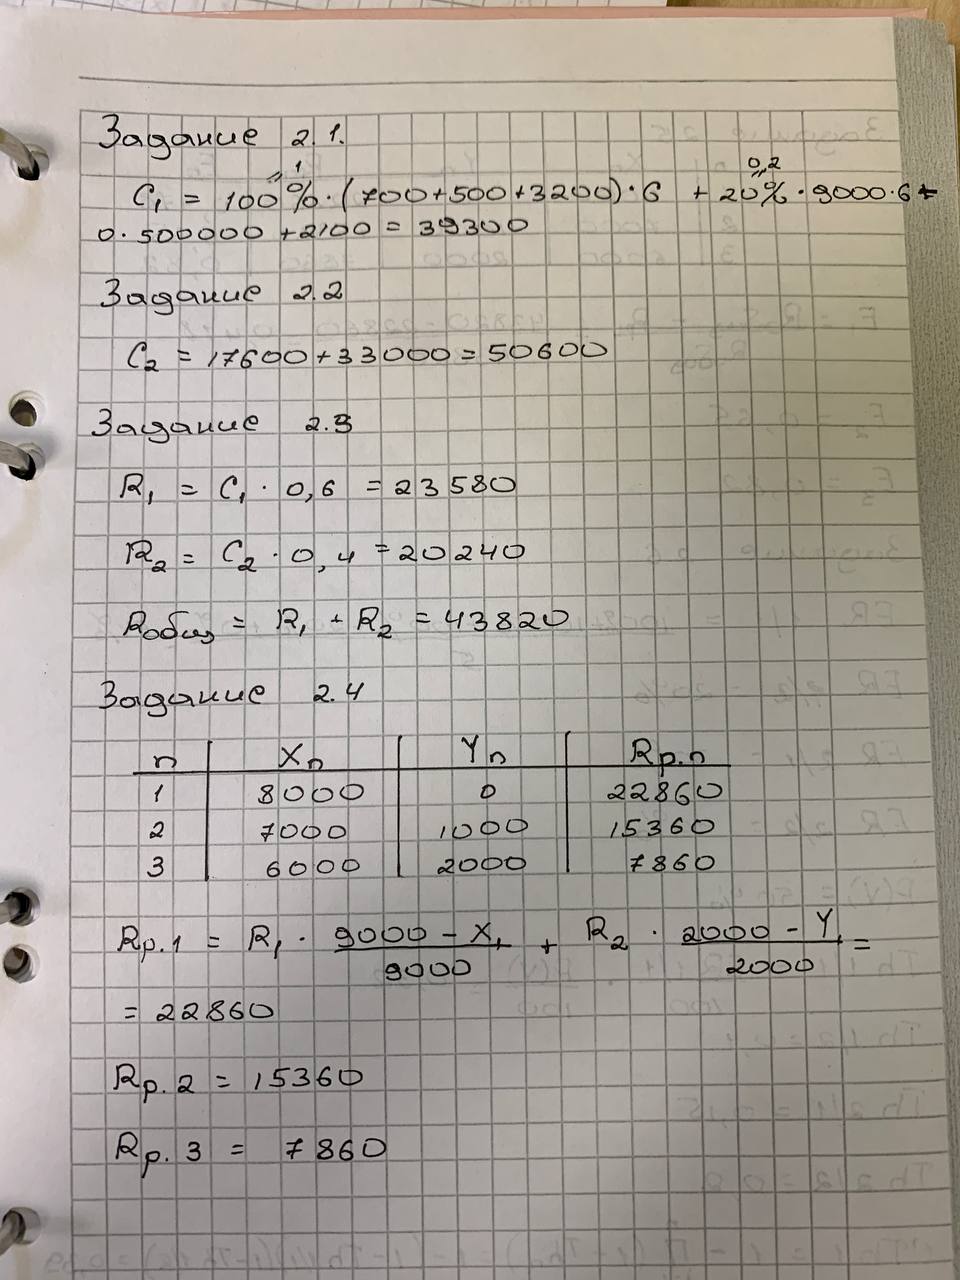 Задание 2.1.
1
0,2
C₁ = 100%·(700+500+3200)·6 + 20%·9000·6+
0·500000+2100=39300
Задание 2.2
C₂ = 17600+33000=50600
Задание 2.3
R₁ = C₁ · 0,6 = 23580
R₂ = C₂ · 0,4 = 20240
Rобщ = R₁ + R₂ = 43820
Задание 2.4
n Xn Yn Rp.n
1 8000 0 22860
2 7000 1000 15360
3 6000 2000 7860
Rp.1 = R₁ · (9000 - X₁)/9000 + R₂ · (2000 - Y₁)/2000 =
= 22860
Rp.2 = 15360
Rp.3 = 7860